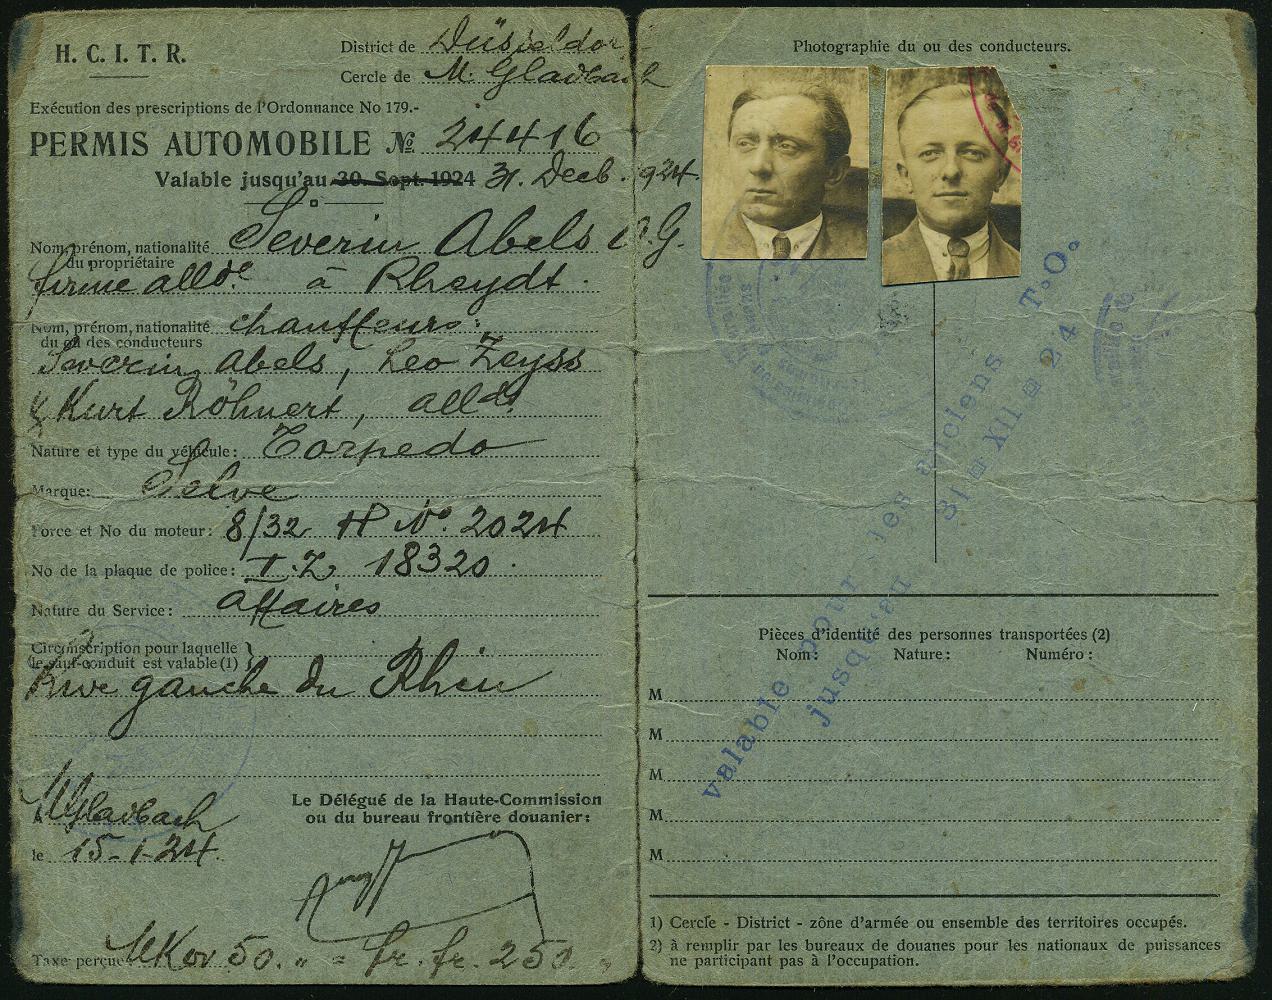 H. C. I. T. R.
District de Düsseldorf
Cercle de M. Gladbach
Exécution des prescriptions de l'Ordonnance No 179.-
PERMIS AUTOMOBILE № 24416
Valable jusqu'au 30. Sept. 1924 31. Decb. 924.
Nom, prénom, nationalité du propriétaire Severin Abels A.G.
firme allde à Rheydt.
Nom, prénom, nationalité du ou des conducteurs chauffeurs:
Severin Abels, Leo Zeyss
& Kurt Röhnert, alld.
Nature et type du véhicule: Torpedo
Marque: Selve
Force et No du moteur: 8/32 HP No. 2024
No de la plaque de police: I.Z 18320.
Nature du Service: affaires
Circonscription pour laquelle
le sauf-conduit est valable (1)
Rive gauche du Rhin
A MGladbach
le 15-1-24.
Le Délégué de la Haute-Commission
ou du bureau frontière douanier:
Taxe perçue 50. „ = fr. fr. 250. „
Photographie du ou des conducteurs.
valable pour les anciens T.O.
jusqu'au 31 XII 24
Pièces d'identité des personnes transportées (2)
Nom: Nature: Numéro:
M
M
M
M
M
1) Cercle - District - zône d'armée ou ensemble des territoires occupés.
2) à remplir par les bureaux de douanes pour les nationaux de puissances
ne participant pas à l'occupation.